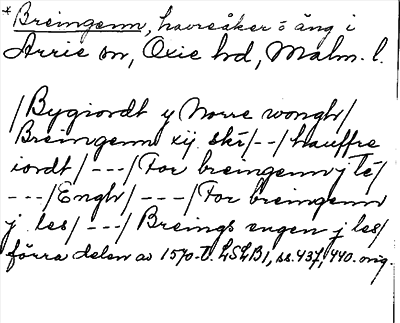 *Breingenn, havreåker o äng i
Arrie sn, Oxie hd, Malm. l.
/Bygiordt y Norre wongh/
Breingenn xij skr/--/hauffre
iordt/---/For breingenn j le/
---/Engh/---/For breingenn
j les/---/Breings engen j les/
förra delen av 1570-t. LSLB1, ss. 437, 440. orig.